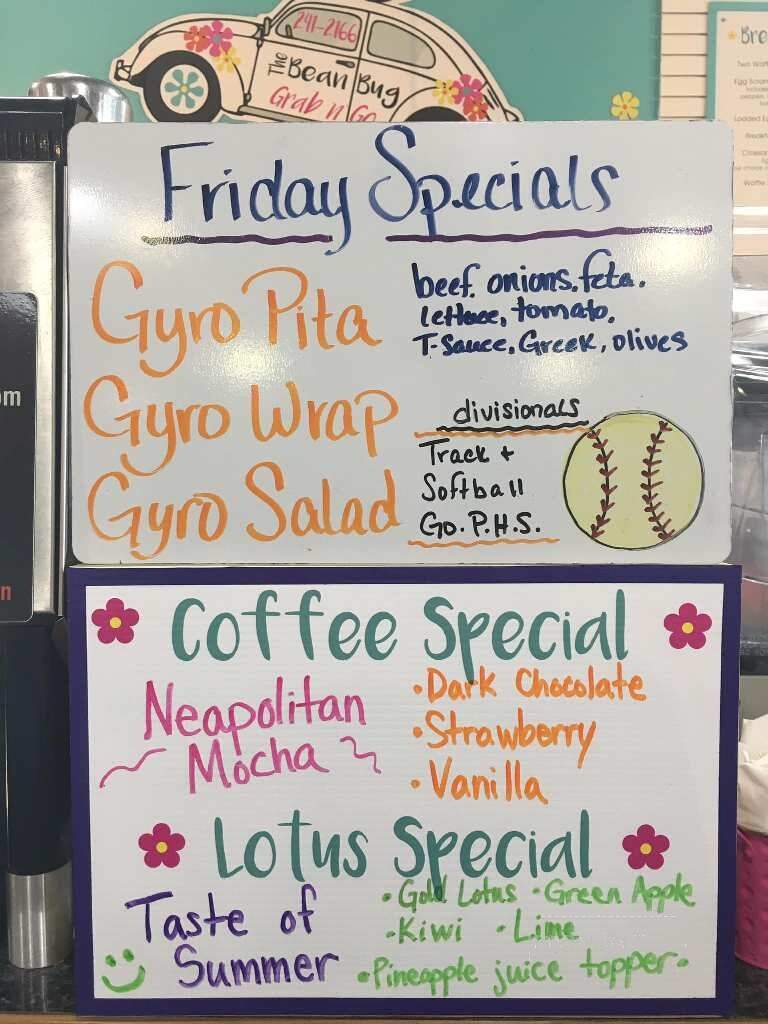 241-2166
The Bean Bug
Grab n Go
Friday Specials
Gyro Pita
beef. onions. feta.
lettuce, tomato.
T-Sauce. Greek, olives
Gyro Wrap
Gyro Salad
divisionals
Track +
Softball
Go. P.H.S.
Coffee Special
Neapolitan
Mocha
• Dark Chocolate
• Strawberry
• Vanilla
Lotus Special
Taste of
Summer
• Gold Lotus • Green Apple
• Kiwi • Lime
• Pineapple juice topper •
Bre
Two Waff
Egg Scram
Loaded Eg
Breakf
Waffle
om
n